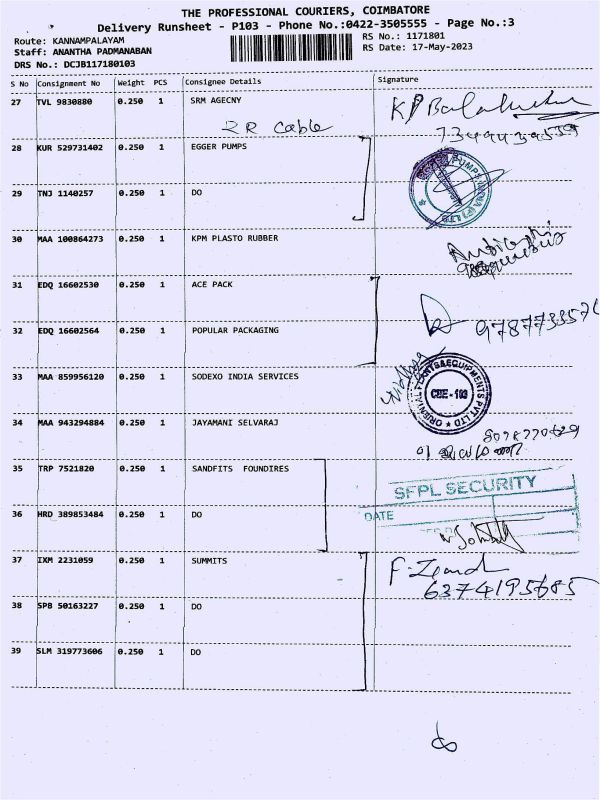 THE PROFESSIONAL COURIERS, COIMBATORE
Delivery Runsheet - P103 - Phone No.:0422-3505555 - Page No.:3
Route: KANNAMPALAYAM
RS No.: 1171801
Staff: ANANTHA PADMANABAN
RS Date: 17-May-2023
DRS No.: DCJB117180103
S No Consignment No Weight PCS Consignee Details Signature
27 TVL 9830880 0.250 1 SRM AGECNY
2R Cable
28 KUR 529731402 0.250 1 EGGER PUMPS
29 TNJ 1140257 0.250 1 DO
30 MAA 100864273 0.250 1 KPM PLASTO RUBBER
31 EDQ 16602530 0.250 1 ACE PACK
32 EDQ 16602564 0.250 1 POPULAR PACKAGING
33 MAA 859956120 0.250 1 SODEXO INDIA SERVICES
ORIENTAL PLANTS & EQUIPMENTS PVT LTD
CBE - 103
34 MAA 943294884 0.250 1 JAYAMANI SELVARAJ
35 TRP 7521820 0.250 1 SANDFITS FOUNDIRES
SFPL SECURITY
36 HRD 389853484 0.250 1 DO
DATE
37 IXM 2231059 0.250 1 SUMMITS
6374195685
38 SPB 50163227 0.250 1 DO
39 SLM 319773606 0.250 1 DO